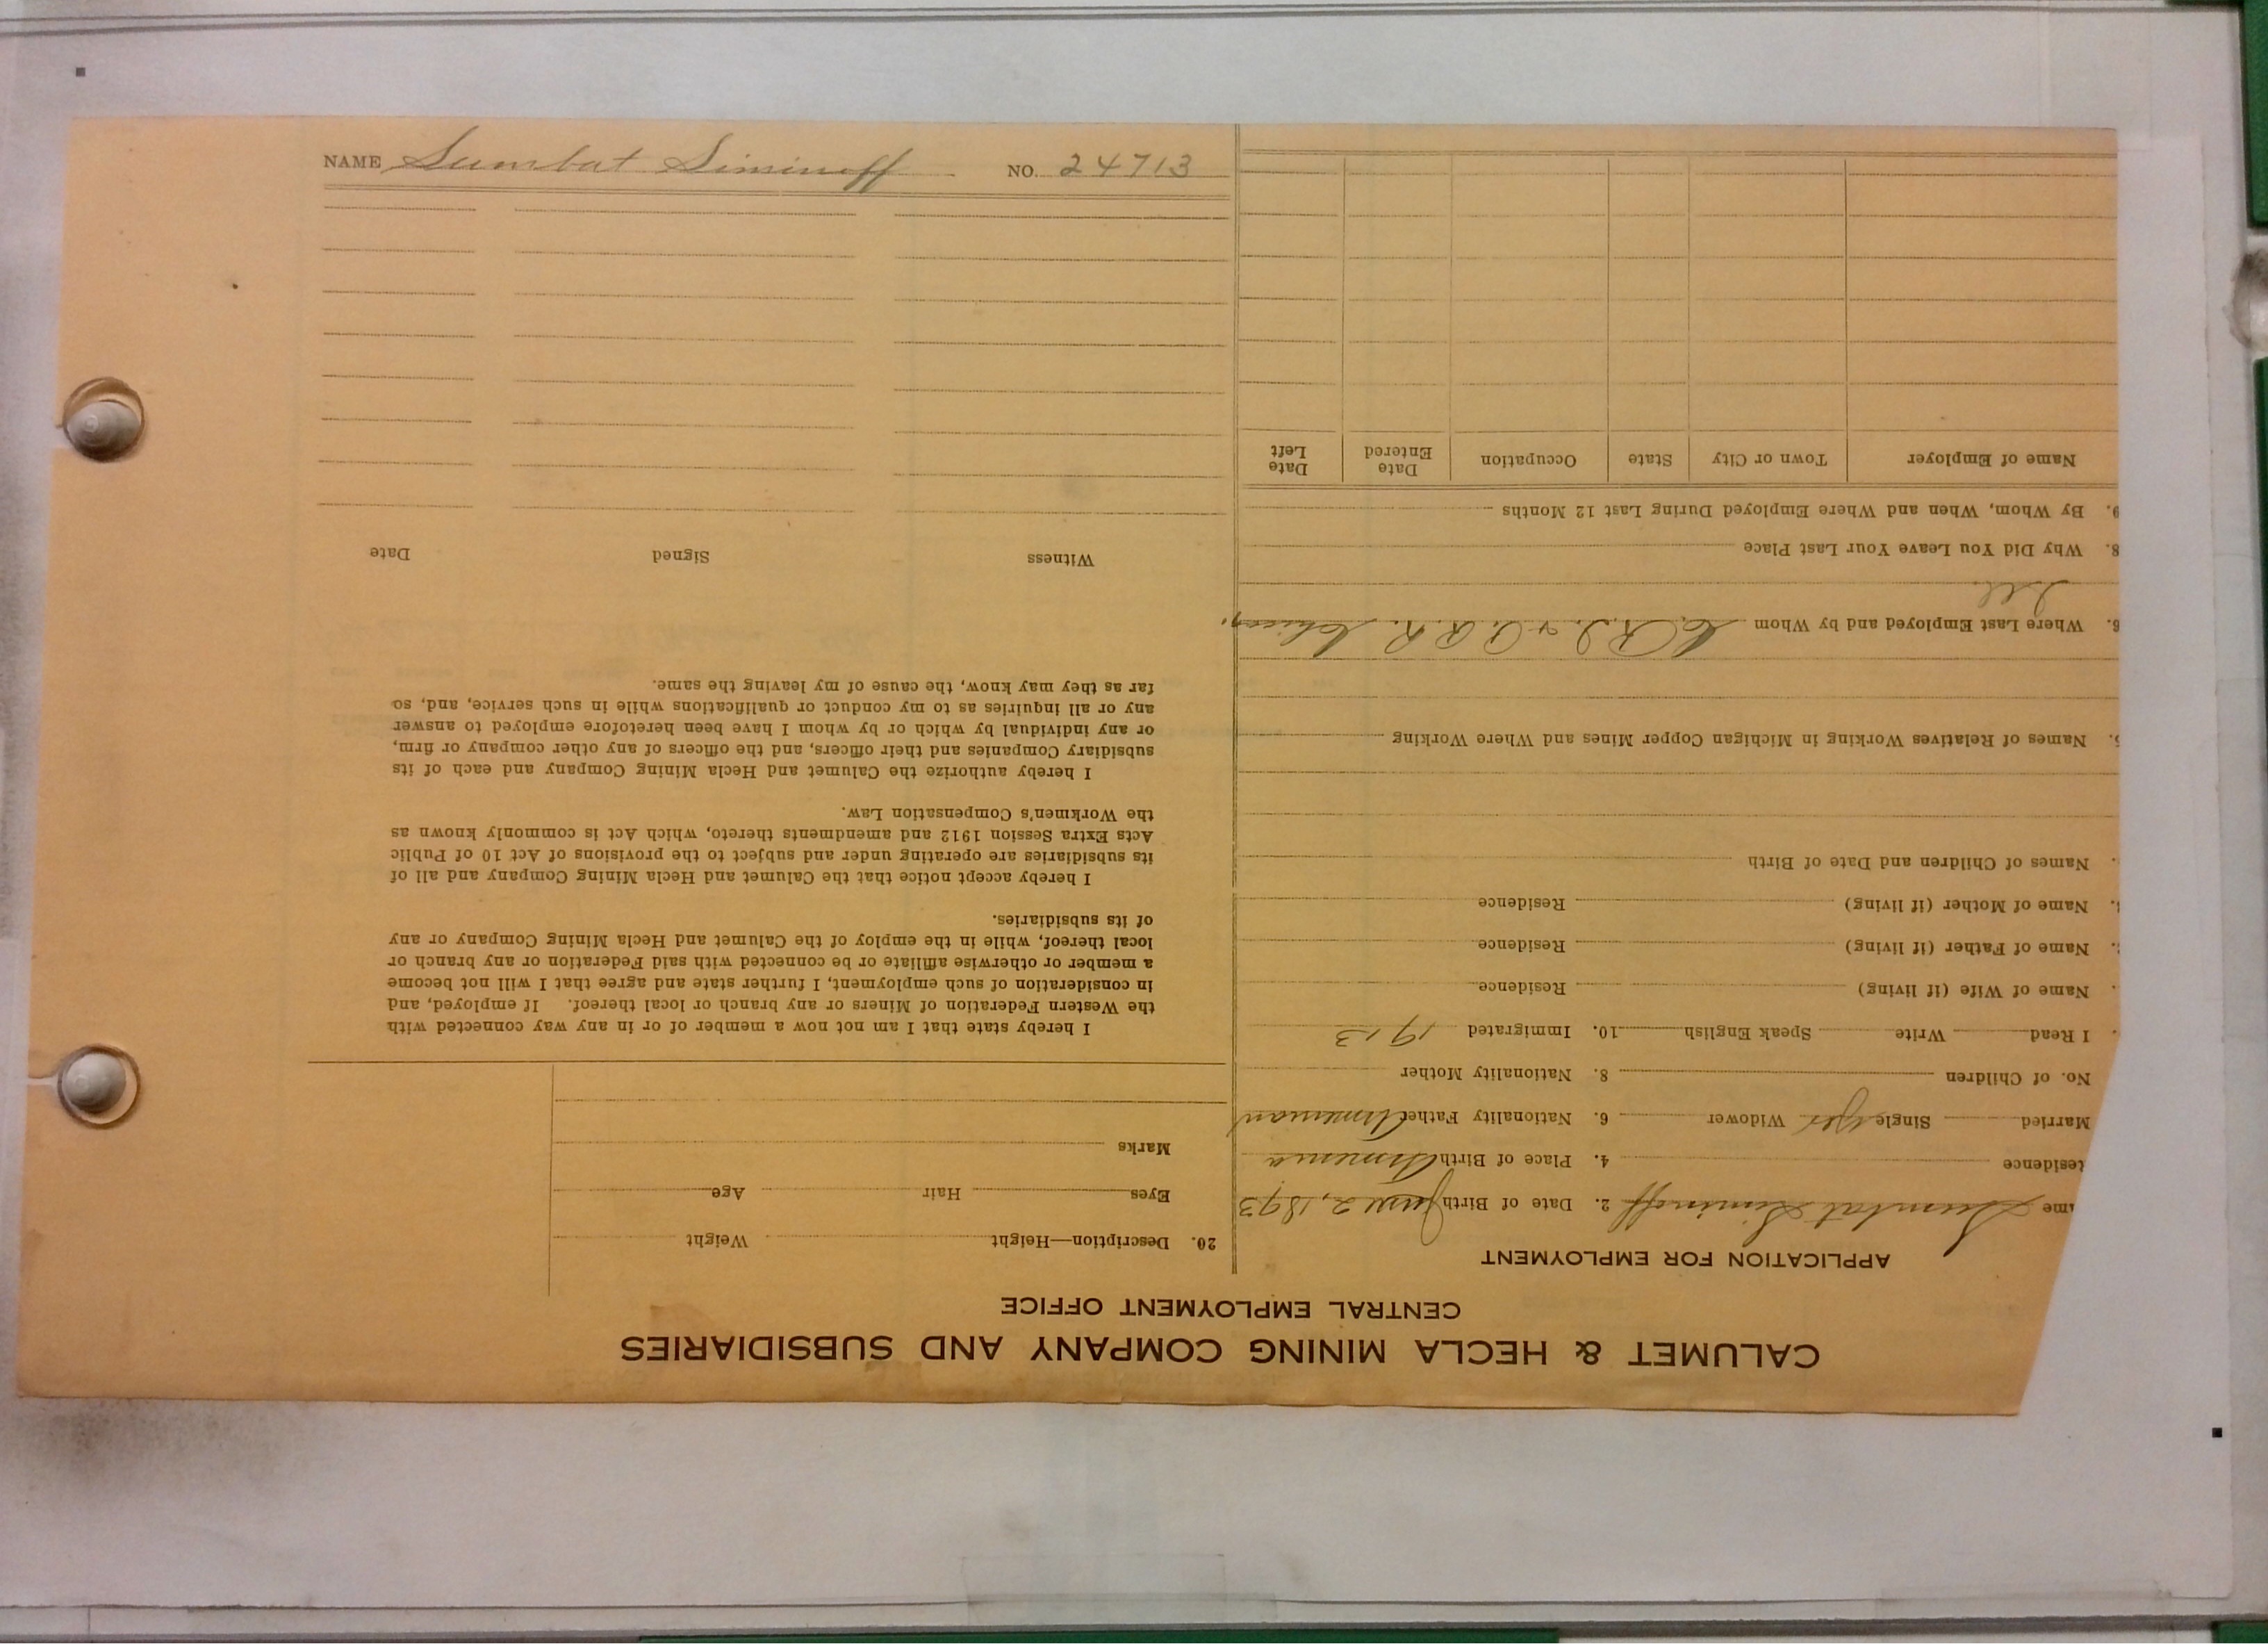 CALUMET & HECLA MINING COMPANY AND SUBSIDIARIES
CENTRAL EMPLOYMENT OFFICE
APPLICATION FOR EMPLOYMENT
ame Sumbat Siminoff 2. Date of Birth June 2, 1893
esidence 4. Place of Birth Armenia
Married Single Yes Widower 6. Nationality Father Armenian
No. of Children 8. Nationality Mother
I Read Write Speak English 10. Immigrated 1913
Name of Wife (if living) Residence
Name of Father (if living) Residence
Name of Mother (if living) Residence
Names of Children and Date of Birth
Names of Relatives Working in Michigan Copper Mines and Where Working
6. Where Last Employed and by Whom C. R. I. & P. R. R. Chicago,
Ill.
8. Why Did You Leave Your Last Place
9. By Whom, When and Where Employed During Last 12 Months
Name of Employer Town or City State Occupation Date Entered Date Left
20. Description—Height Weight
Eyes Hair Age
Marks
I hereby state that I am not now a member of or in any way connected with
the Western Federation of Miners or any branch or local thereof. If employed, and
in consideration of such employment, I further state and agree that I will not become
a member or otherwise affiliate or be connected with said Federation or any branch or
local thereof, while in the employ of the Calumet and Hecla Mining Company or any
of its subsidiaries.
I hereby accept notice that the Calumet and Hecla Mining Company and all of
its subsidiaries are operating under and subject to the provisions of Act 10 of Public
Acts Extra Session 1912 and amendments thereto, which Act is commonly known as
the Workmen's Compensation Law.
I hereby authorize the Calumet and Hecla Mining Company and each of its
subsidiary Companies and their officers, and the officers of any other company or firm,
or any individual by which or by whom I have been heretofore employed to answer
any or all inquiries as to my conduct or qualifications while in such service, and, so
far as they may know, the cause of my leaving the same.
Witness Signed Date
NAME Sumbat Siminoff NO. 24713